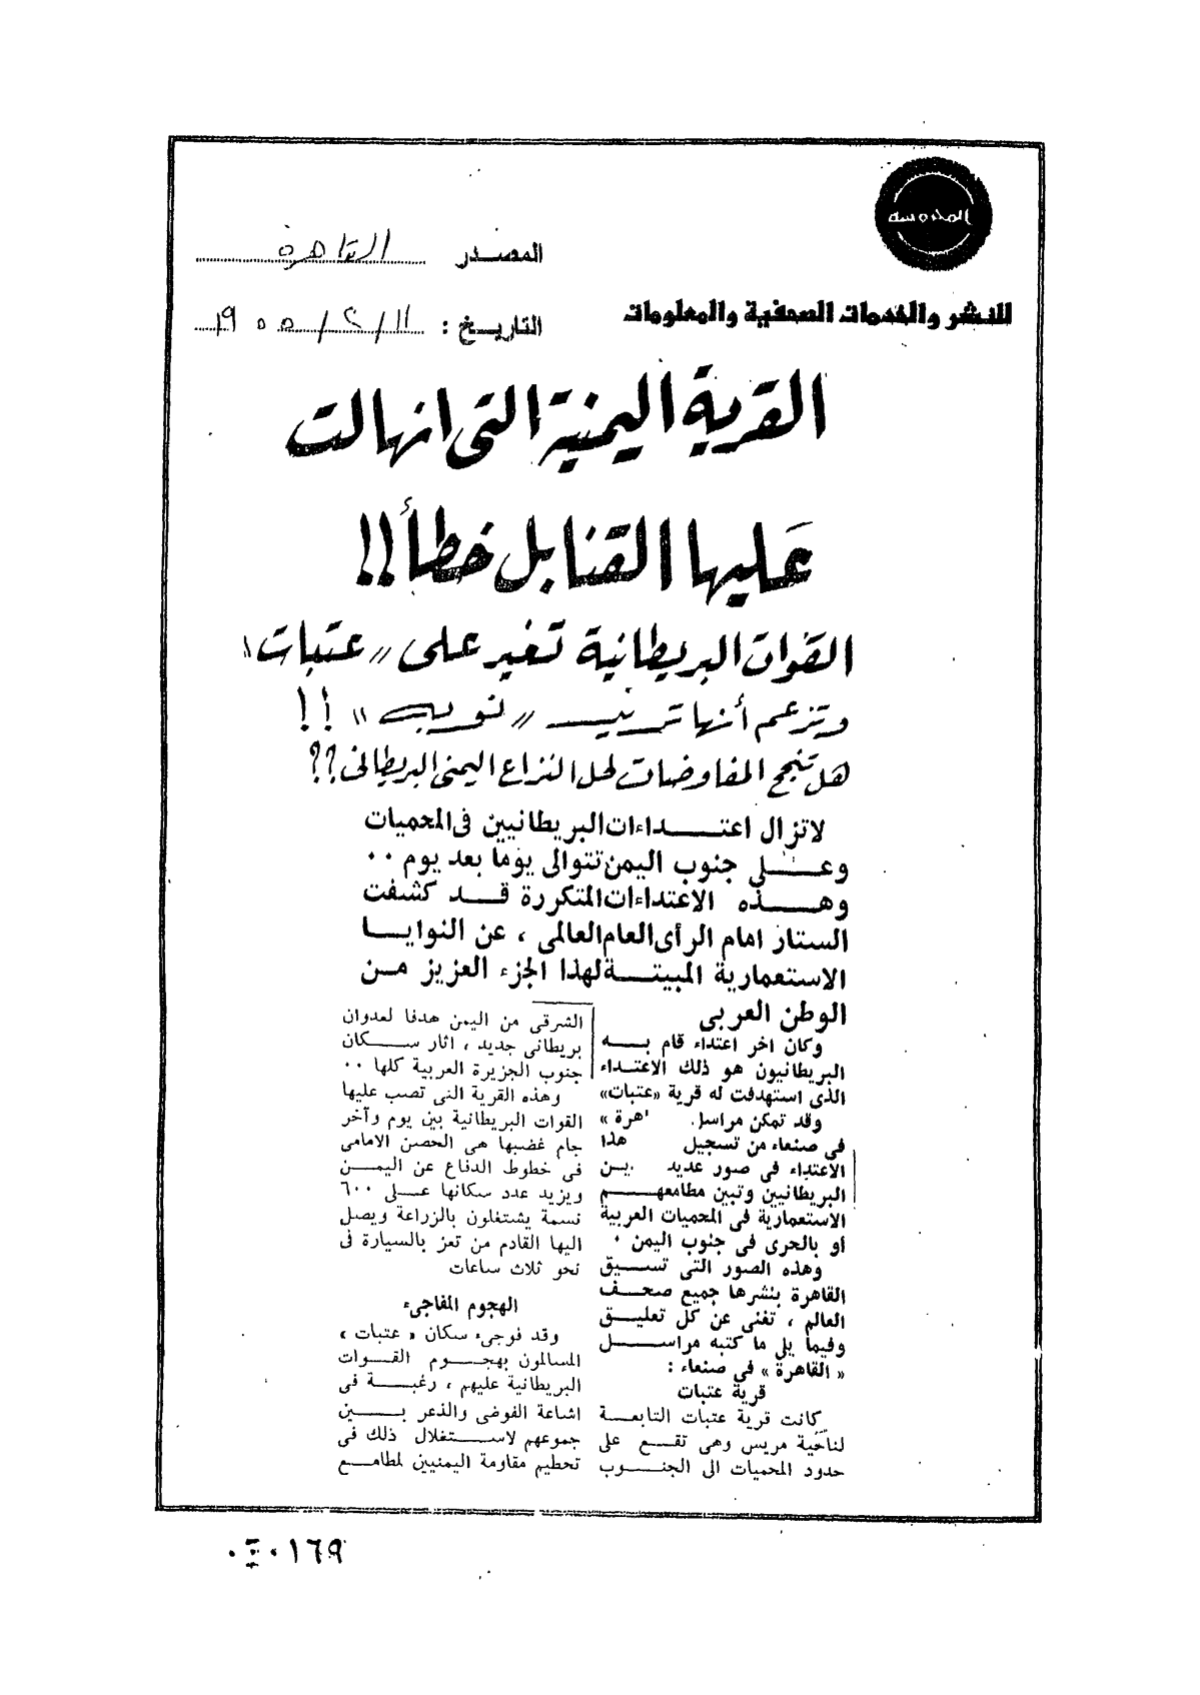 المحروسة
للنشر والخدمات الصحفية والمعلومات
المصدر القاهرة
التاريخ : ١١ / ٢ / ١٩٥٥
القرية اليمنية التى انهالت
عليها القنابل خطأ !!
القوات البريطانية تغير على « عتبات »
وتزعم أنها
هل تنجح المفاوضات لحل النزاع اليمنى البريطانى ؟؟
لاتزال اعتداءات البريطانيين فى المحميات
وعلى جنوب اليمن تتوالى يوما بعد يوم ٠٠
وهذه الاعتداءات المتكررة قد كشفت
الستار امام الرأى العام العالمى ، عن النوايا
الاستعمارية المبيتة لهذا الجزء العزيز من
الوطن العربى
وكان اخر اعتداء قام به
البريطانيون هو ذلك الاعتداء
الذى استهدفت له قرية «عتبات»
وقد تمكن مراسل اهرة »
فى صنعاء من تسجيل هذا
الاعتداء فى صور عديد ين
البريطانيين وتبين مطامعهم
الاستعمارية فى المحميات العربية
او بالحرى فى جنوب اليمن ٠
وهذه الصور التى تسبق
القاهرة بنشرها جميع صحف
العالم ، تغنى عن كل تعليق
وفيما يلى ما كتبه مراسل
« القاهرة » فى صنعاء :
قرية عتبات
كانت قرية عتبات التابعة
لناحية مريس وهى تقع على
حدود المحميات الى الجنوب
الشرقى من اليمن هدفا لعدوان
بريطانى جديد ، اثار سكان
جنوب الجزيرة العربية كلها ٠٠
وهذه القرية التى تصب عليها
القوات البريطانية بين يوم وآخر
جام غضبها هى الحصن الامامى
فى خطوط الدفاع عن اليمن
ويزيد عدد سكانها على ٦٠٠
نسمة يشتغلون بالزراعة ويصل
اليها القادم من تعز بالسيارة فى
نحو ثلاث ساعات
الهجوم المفاجىء
وقد فوجىء سكان « عتبات »
المسالمون بهجوم القوات
البريطانية عليهم ، رغبة فى
اشاعة الفوضى والذعر بين
جموعهم لاستغلال ذلك فى
تحطيم مقاومة اليمنيين لمطامع